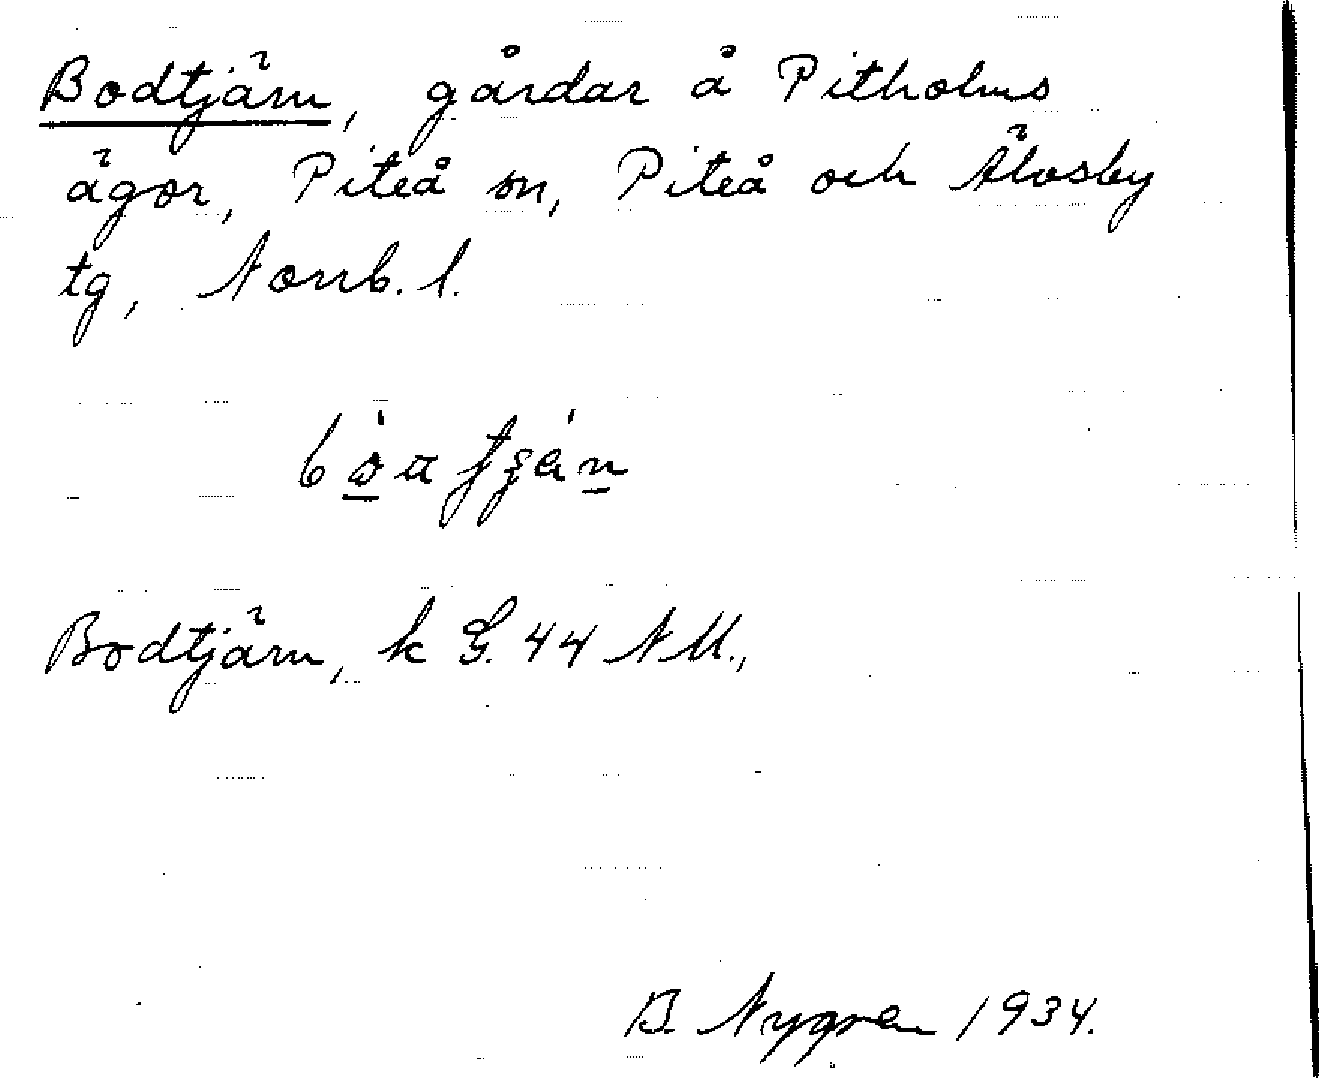 Bodtjärn, gårdar å Pitholms
ägor, Piteå sn, Piteå och Älvsby
tg, Norrb. l.
Bodtjärn, k G. 44 NU.,
B. Nygren 1934.